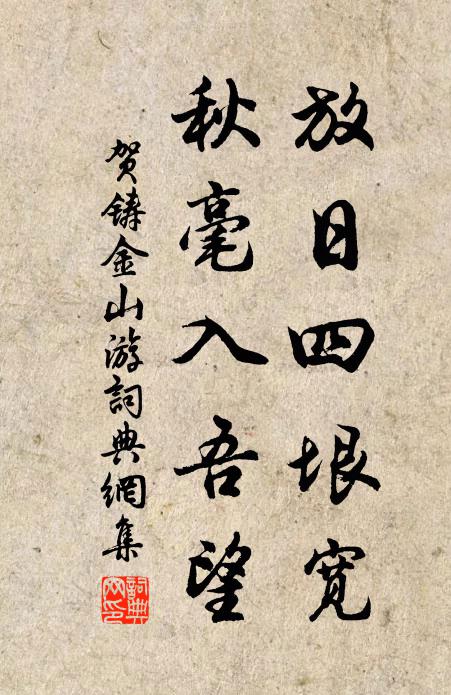 放日四垠寬
秋毫入吾望
贺鑄金山游詞典網集
詞典網印